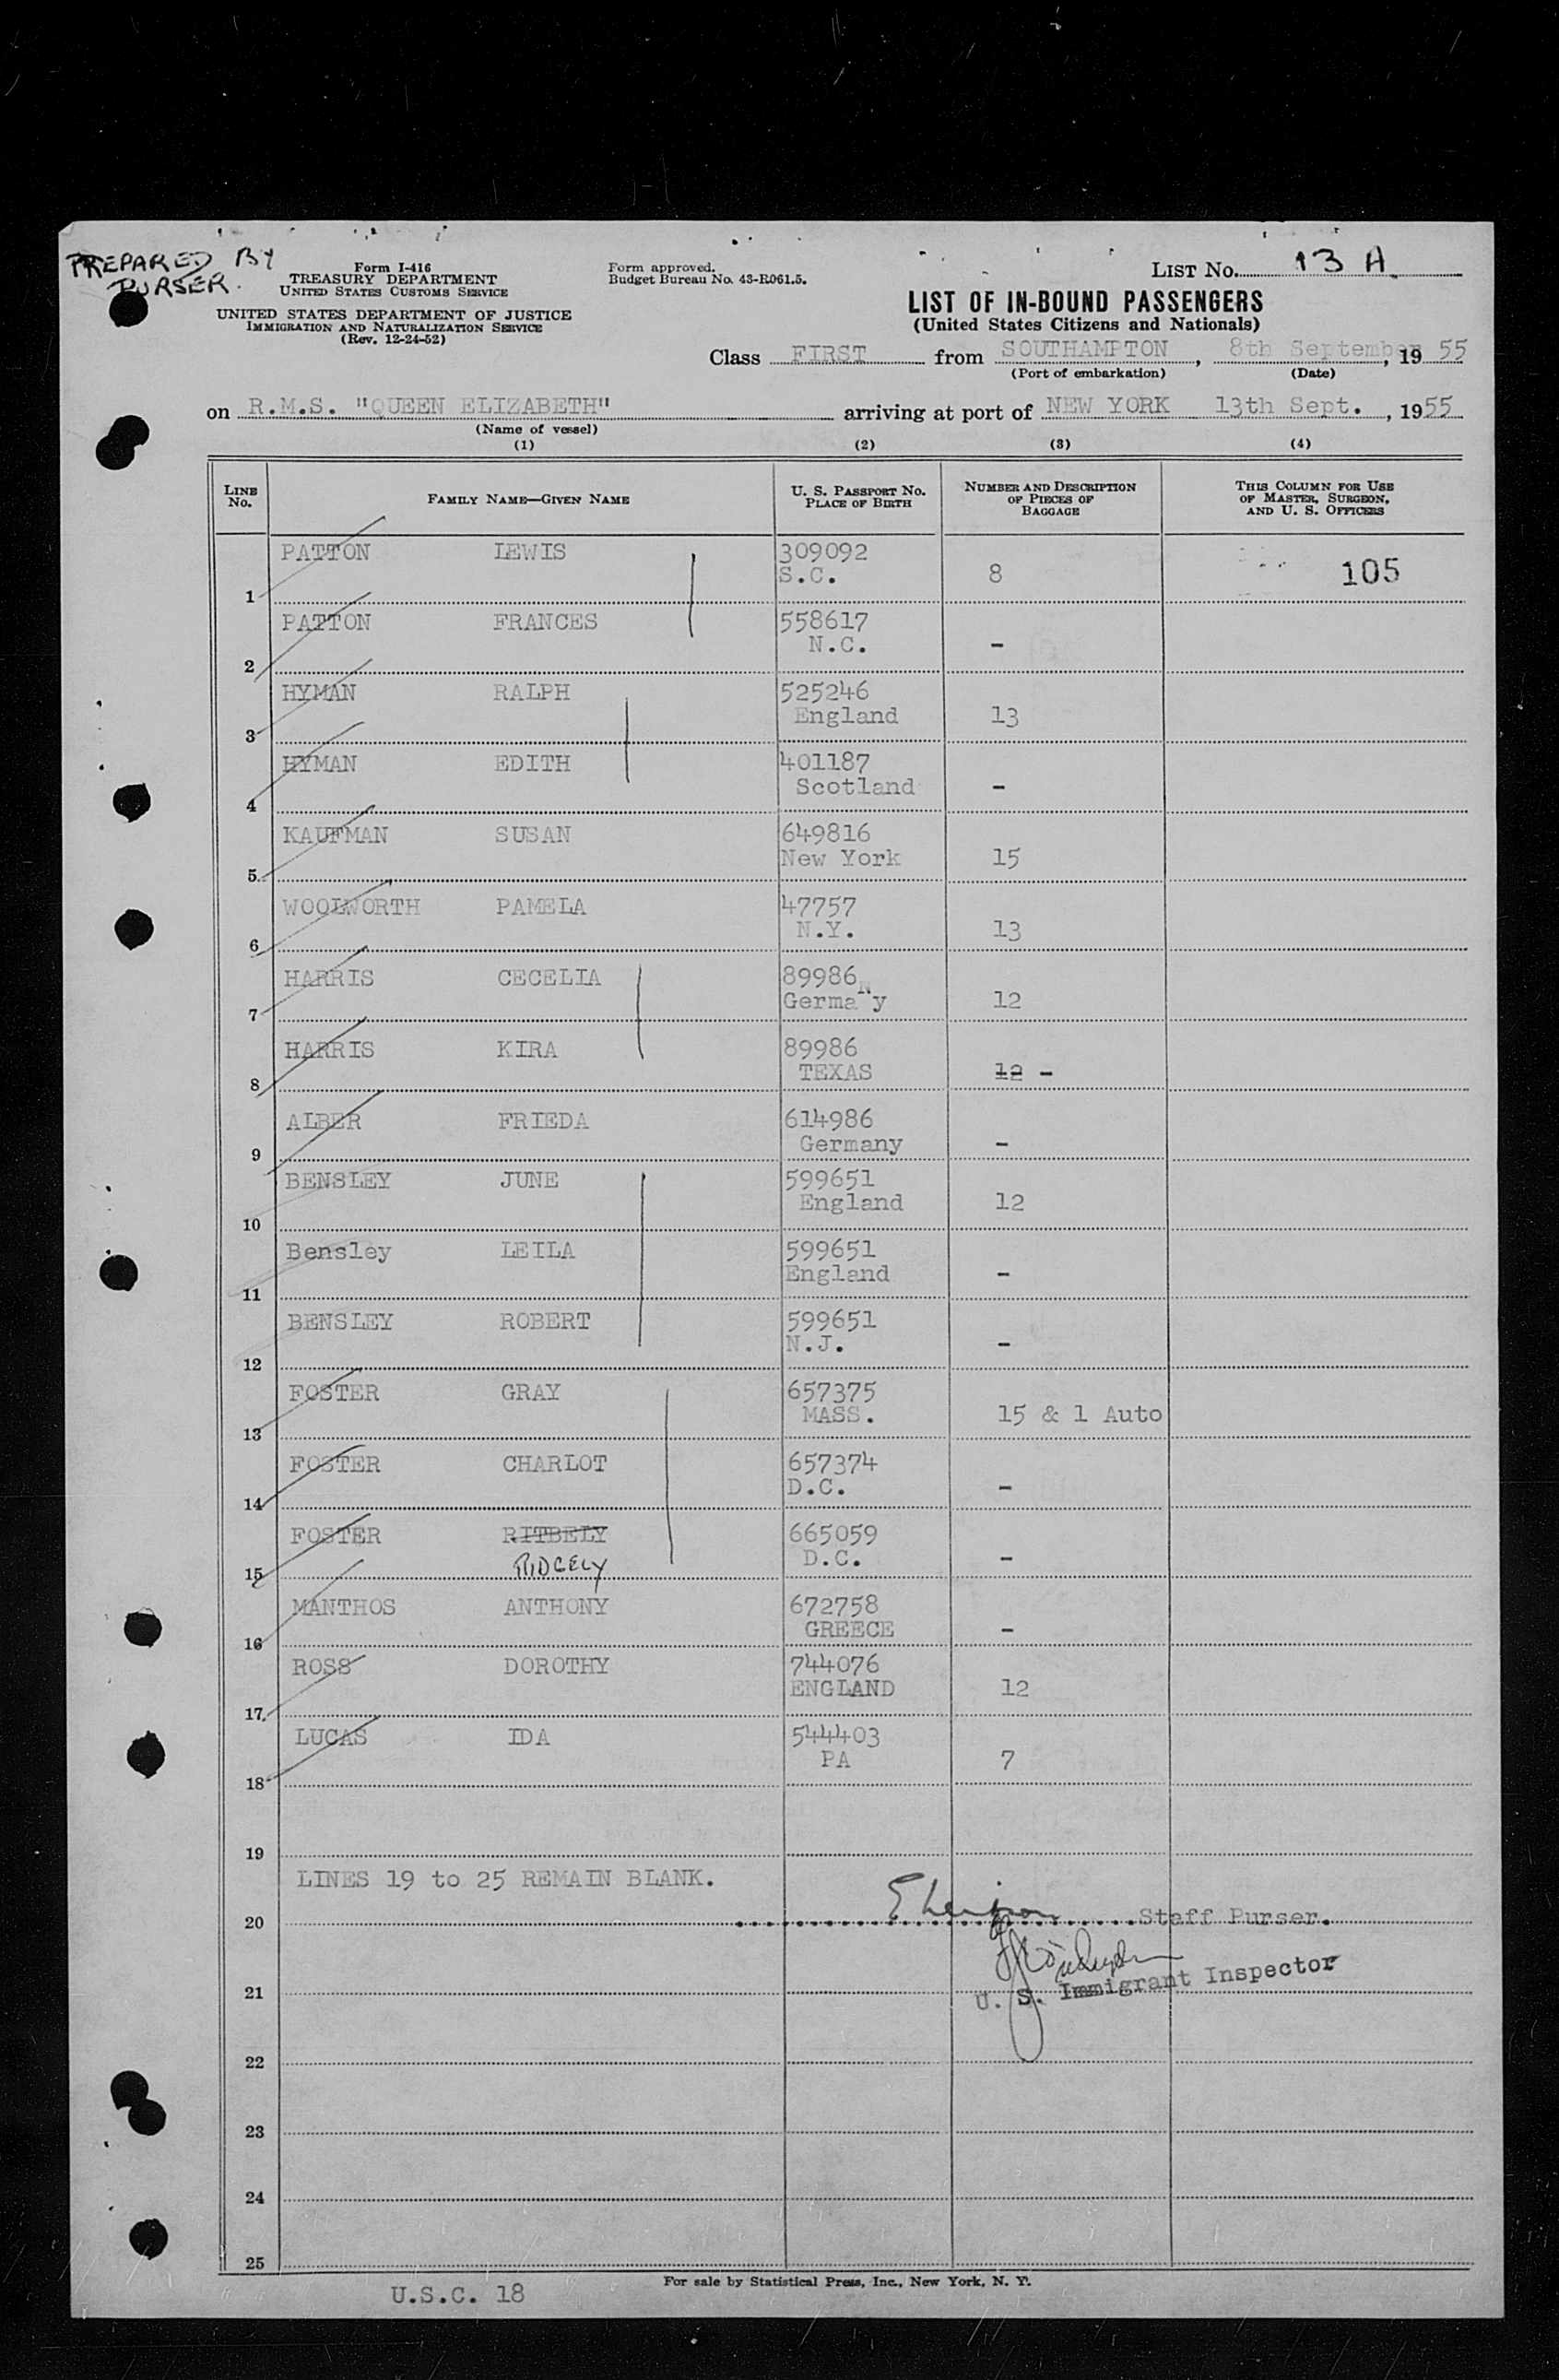 PREPARED BY
PURSER.
Form I-416
TREASURY DEPARTMENT
UNITED STATES CUSTOMS SERVICE
UNITED STATES DEPARTMENT OF JUSTICE
IMMIGRATION AND NATURALIZATION SERVICE
(Rev. 12-24-52)
Form approved.
Budget Bureau No. 43-R061.5.
LIST No. 13 A
LIST OF IN-BOUND PASSENGERS
(United States Citizens and Nationals)
Class FIRST from SOUTHAMPTON, 8th September, 19 55
(Port of embarkation) (Date)
on R.M.S. "QUEEN ELIZABETH" arriving at port of NEW YORK 13th Sept., 1955
(Name of vessel)
(1) (2) (3) (4)
LINE No. FAMILY NAME—GIVEN NAME U. S. PASSPORT No. PLACE OF BIRTH NUMBER AND DESCRIPTION OF PIECES OF BAGGAGE THIS COLUMN FOR USE OF MASTER, SURGEON, AND U. S. OFFICERS
PATTON LEWIS 309092
S.C. 8 105
1
PATTON FRANCES 558617
N.C. -
2
HYMAN RALPH 525246
England 13
3
HYMAN EDITH 401187
Scotland -
4
KAUFMAN SUSAN 649816
New York 15
5
WOOLWORTH PAMELA 47757
N.Y. 13
6
HARRIS CECELIA 89986
Germany 12
7
HARRIS KIRA 89986
TEXAS 12 -
8
ALBER FRIEDA 614986
Germany -
9
BENSLEY JUNE 599651
England 12
10
Bensley LEILA 599651
England -
11
BENSLEY ROBERT 599651
N.J. -
12
FOSTER GRAY 657375
MASS. 15 & 1 Auto
13
FOSTER CHARLOT 657374
D.C. -
14
FOSTER RITBELY 665059
RIDGELY D.C. -
15
MANTHOS ANTHONY 672758
GREECE -
16
ROSS DOROTHY 744076
ENGLAND 12
17
LUCAS IDA 544403
PA 7
18
19
LINES 19 to 25 REMAIN BLANK.
20 Staff Purser.
21 U. S. Immigrant Inspector
22
23
24
25
For sale by Statistical Press, Inc., New York, N. Y.
U.S.C. 18